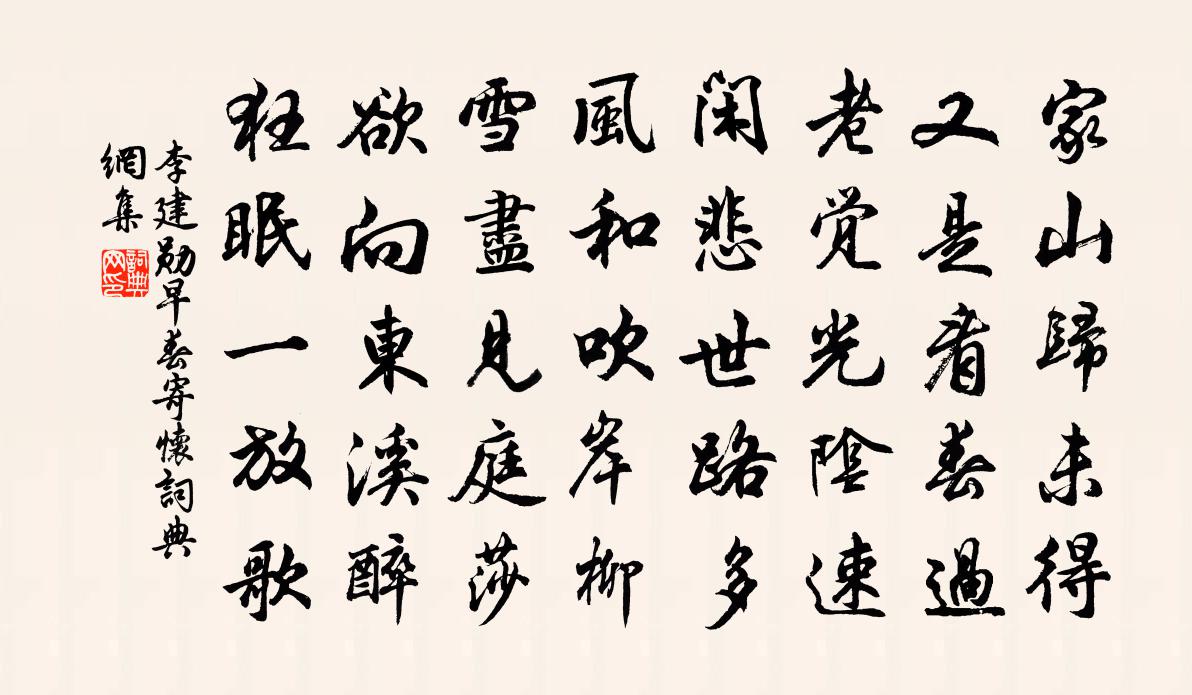 家山歸未得
又是看春過
老覺光陰速
閑悲世路多
風和吹岸柳
雪盡見庭莎
欲向東溪醉
狂眠一放歌
李建勛早春寄懷詞典
網集
詞典
网印